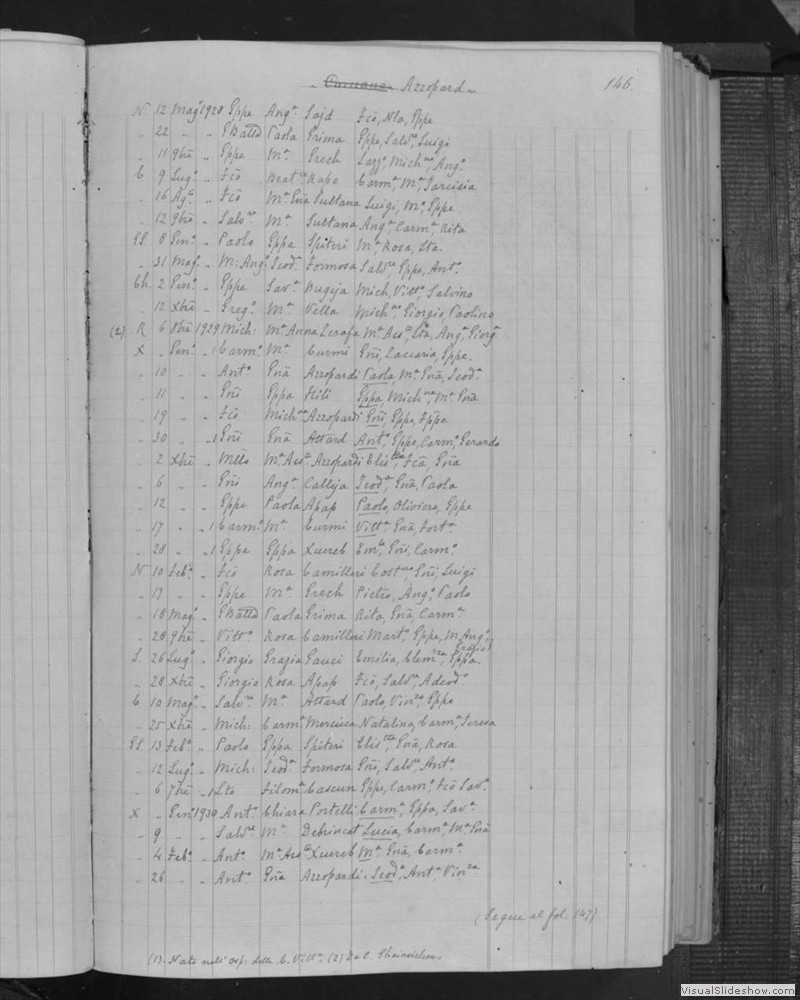 Caruana Azzopardi 146.
N 12 Magº 1928 Eppe Angª Sajd Fcõ, Nla, Eppe
„ 22 „ „ GBattã Paola Grima Eppe, Salvª, Luigi
„ 11 9bre „ Eppe Mª Grech Lazzº, Michˡᵉ, Angª
C 9 Lugº „ Fcõ Beatᶜᵉ Rape Carmª, Mª Tarcisia
„ 16 Agº „ Fcõ Mª Gnã Sultana Luigi, Mª, Eppe
„ 12 9bre „ Salvʳᵉ Mª Sultana Angª, Carmª, Rita
SS. 8 Genº „ Paolo Eppa Spiteri Mª Rosa, Lta.
„ 31 Magº „ M: Angº Teodª Formosa Salvʳᵉ, Eppe, Antº
Ch. 2 Genº „ Eppe Savª Bugeja Mich, Vittª, Salvino
„ 12 Xbre „ Gregº Mª Vella Michˡᵉ, Giorgio, Paolino
(2) R 6 8bre 1929 Mich: Mª Anna Zerafa Mª Assᵗᵃ, Lta, Angª, Giorgº
X „ Genº „ 1 Carmº Mª Curmi Gnĩ, Zaccaria, Eppe.
„ 10 „ „ Antº Gnã Azzopardi Paola, Mª Gnã, Teodª
„ 11 „ „ Gnĩ Eppa Fiti Eppa, Michˡᵉ, Mª Gnã
„ 19 „ „ Fcõ Michˡᵃ Azzopardi Gnĩ, Eppe,
„ 30 „ „ 1 Gnĩ Gnã Attard Antº, Eppe, Carmº, Gerardo
„ 2 Xbre „ Mttõ Mª Assᵗᵃ Azzopardi Elisᵗᵗᵃ, Fcã, Gnã
„ 6 „ „ Gnĩ Angª Calleja Teodª, Gnã, Paola
„ 12 „ „ Eppe Paola Apap Paolo, Oliviero, Eppe
„ 17 „ „ 1 Carmº Mª Curmi Vittª, Gnã, Fortª
„ 28 „ „ 1 Eppe Eppa Xuereb Emˡᵃ, Gnĩ, Carmº
N 10 Febº „ Fcõ Rosa Camilleri Costⁿᵒ, Gnĩ, Luigi
„ 17 „ „ Eppe Mª Grech Pietro, Angº, Paolo
„ 18 Magº „ GBattã Paola Grima Rita, Gnã, Carmª
„ 28 9bre „ Vittº Rosa Camilleri Martº, Eppe, M. Angº
S. 26 Lugº „ Giorgio Grazia Gauci Emilia, Clemᶻᵃ, Eppa.
„ 28 Xbre „ Giorgio Rosa Apap Fcõ, Salvʳᵉ, Adeodº
C 10 Magº „ Salvʳᵉ Mª Attard Paolo, Vinᶻᵒ, Eppe
„ 25 Xbre „ Mich: Carmª Mercieca Natalina, Carmª, Teresa
SS. 13 Febº „ Paolo Eppa Spiteri Elisᵗᵗᵃ, Gnã, Rosa
„ 12 Lugº „ Mich: Teodª Formosa Gnĩ, Salvʳᵉ, Antº
„ 6 7bre „ 1 Lto Filomª Cascun Eppe, Carmº, Fcõ Savº
X „ Genº 1930 Antº Chiara Portelli Carmª, Eppa, Savª
„ 9 „ „ Salvʳᵉ Mª Debrincat Lucia, Carmª, Mª Gnã
„ 4 Febº „ Antº Mª Assᵗᵃ Xuereb Mª Gnã, Carmª
„ 26 „ „ Antº Gnã Azzopardi Teodª, Antª, Vinᶻᵃ
(Segue al fol. 147)
(1) Nato nell' Osp: della C. Vittª (2) Da C.
VisualSlideshow.com